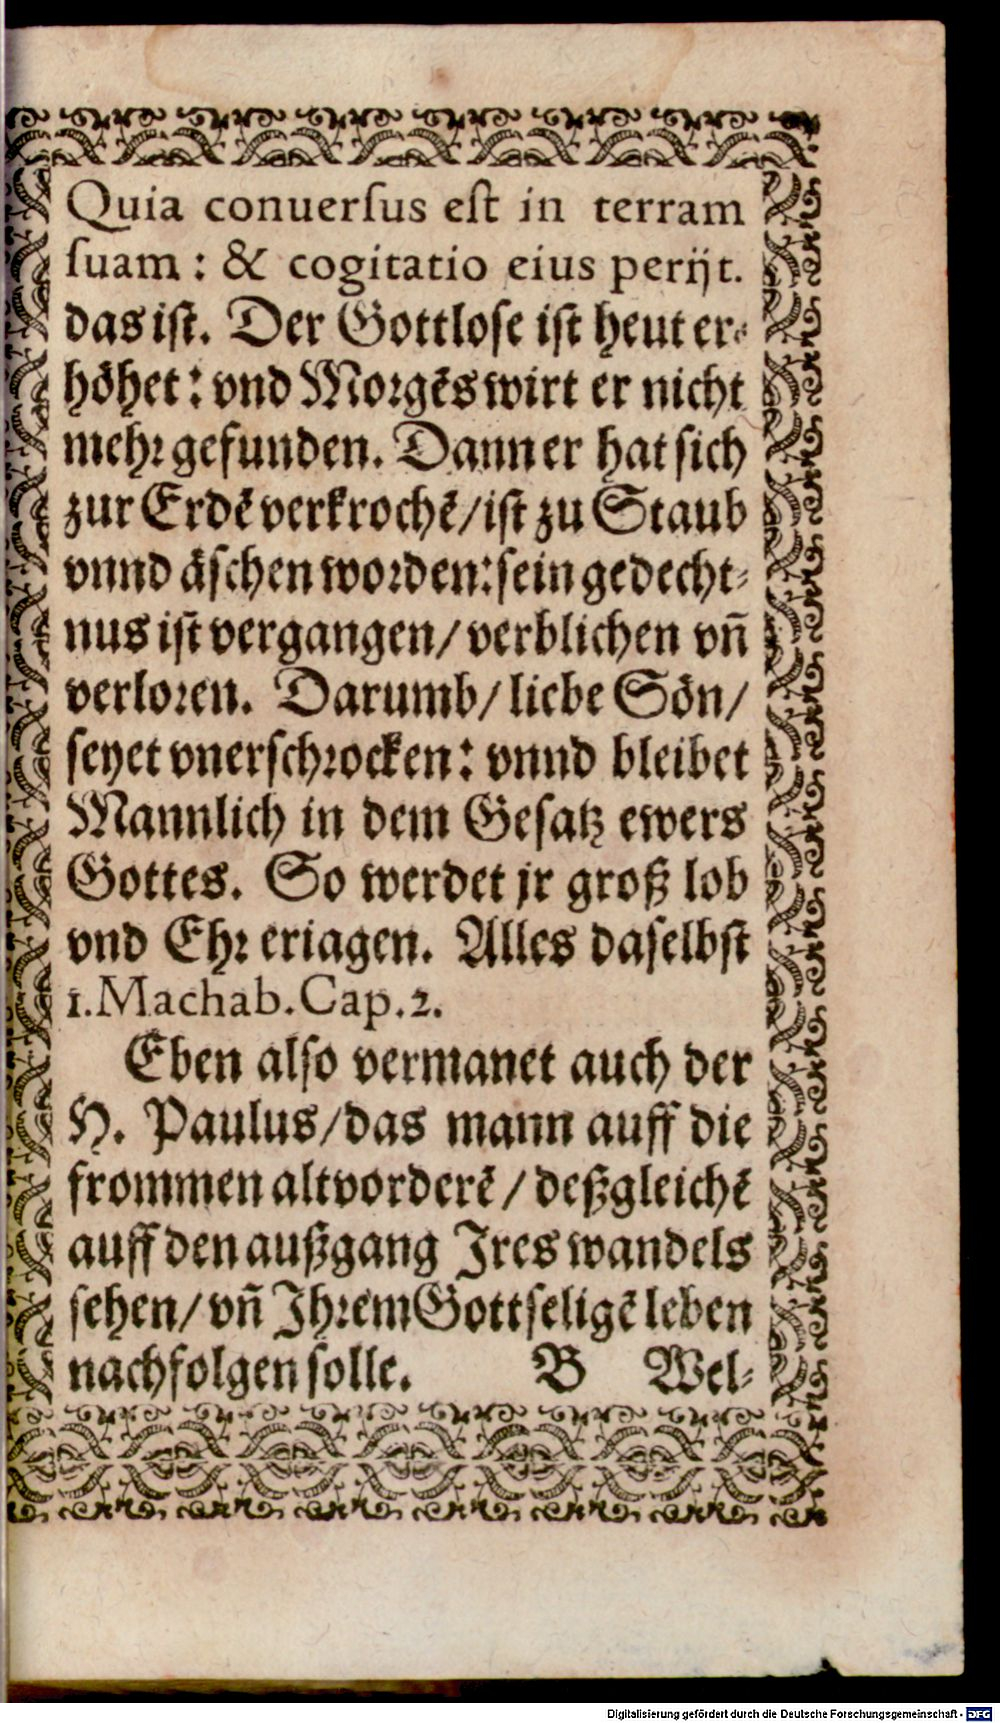 Quia conuerſus eſt in terram
ſuam: & cogitatio eius perijt.
das iſt. Der Gottloſe iſt heut er-
höhet: vnd Morgēs wirt er nicht
mehr gefunden. Dann er hat ſich
zur Erdē verkrochē/iſt zu Staub
vnnd äſchen worden: ſein gedecht-
nus iſt vergangen/ verblichen vn̄
verloren. Darumb/ liebe Sön/
ſeyet vnerſchrocken: vnnd bleibet
Mannlich in dem Geſatz ewers
Gottes. So werdet jr groß lob
vnd Ehr eriagen. Alles daſelbſt
1. Machab. Cap. 2.
Eben alſo vermanet auch der
H. Paulus/das mann auff die
frommen altvorderē/ deßgleichē
auff den außgang Ires wandels
ſehen/ vn̄ Ihrem Gottſeligē leben
nachfolgen ſolle. B Wel-
Digitalisierung gefördert durch die Deutsche Forschungsgemeinschaft - DFG